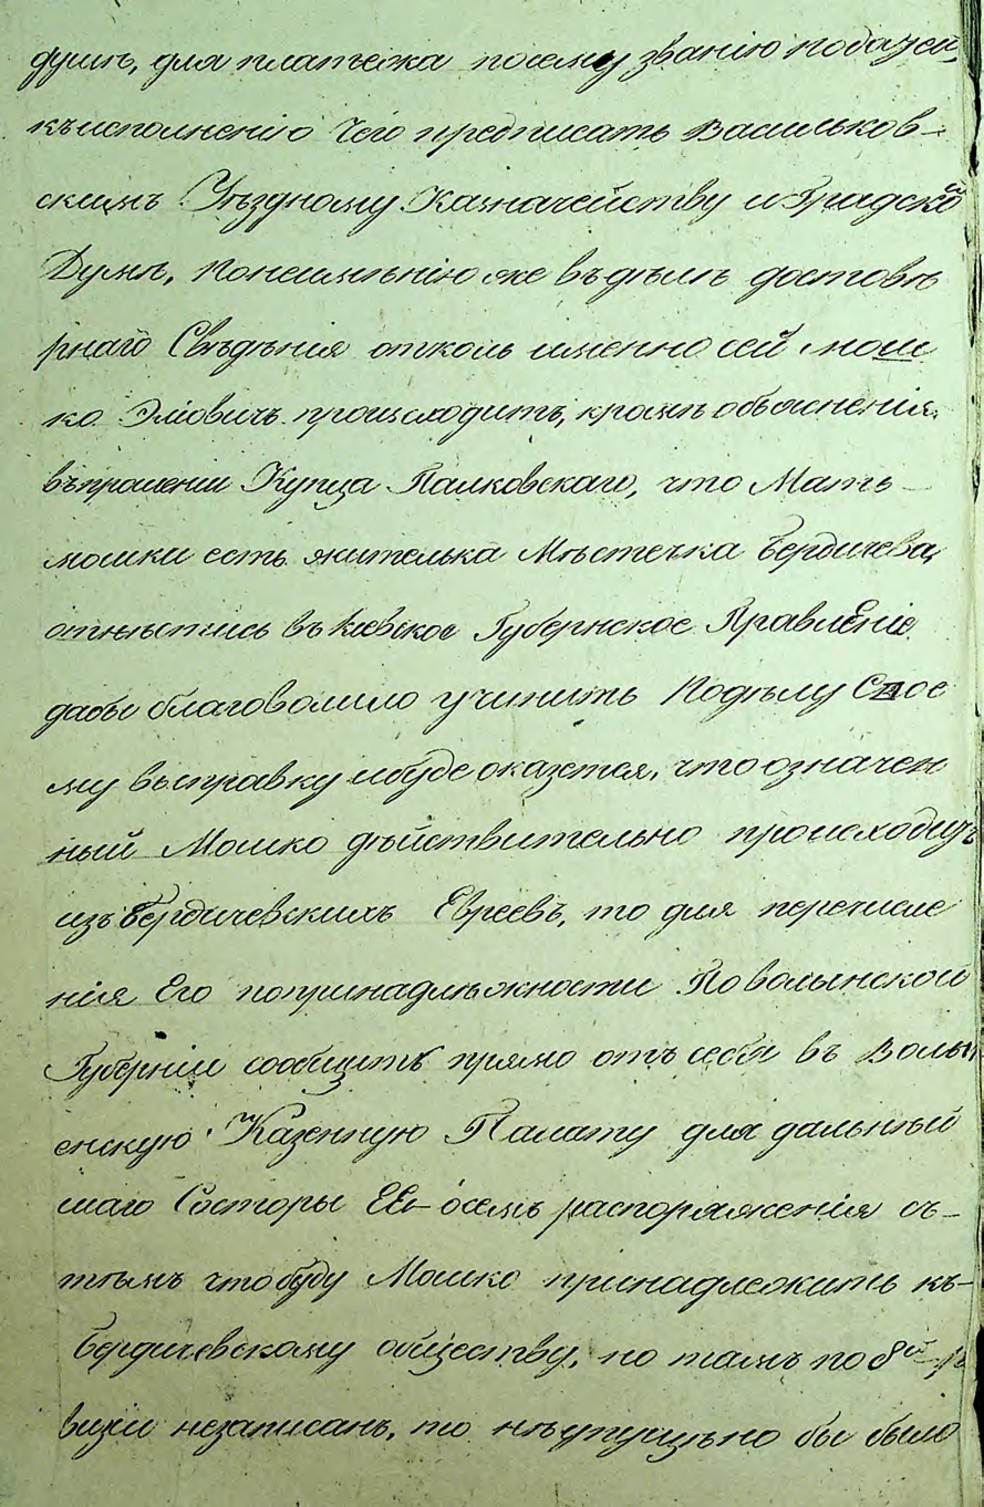 душъ, для платежа посему званію податей,
къисполненію чего предписать Васильков-
скимъ Уѣздному Казначейству и Градской
Думѣ, Понеимѣнію же въдѣлѣ достовѣ
рнаго Свѣдѣнія отколь именно сей Мош
ко Эліовичъ происходитъ, кромѣ объясненія
въпрошеніи Купца Палковскаго, что Мать
мошки есть жителька Мѣстечка Бердичева,
отнѣстись въ Кіевское Губернское Правленіе
дабы благоволило учинить Подѣлу Сное
му выправку ибуде окажется, что означен
ный Мошко дѣйствительно происходитъ
изъ Бердичевскихъ Евреевъ, то для перечисле
нія Его попринадлѣжности По волынской
Губерніи сообщить прямо отъ себя въ Волы
нскую Казенную Палату для дальнѣй
шаго Состороы Ея осемъ распоряженія съ-
тѣмъ что буду Мошко принадлежить къ-
Бердичевскому обществу, но тамъ по 8й ре
визіи незаписанъ, то нѣупущѣно бы было